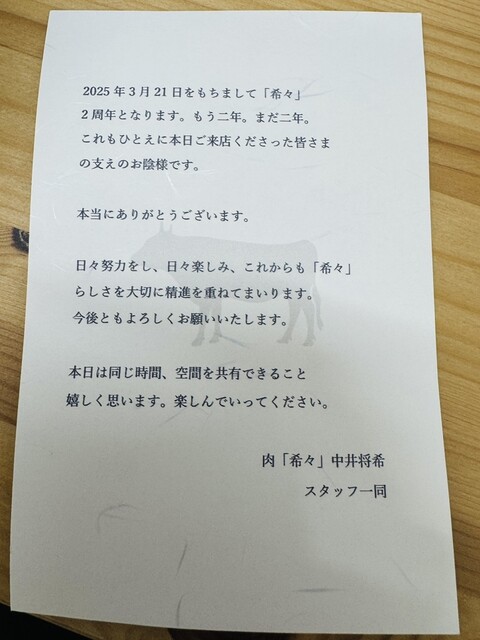 2025 年 3 月 21 日をもちまして「希々」
2 周年となります。もう二年。まだ二年。
これもひとえに本日ご来店くださった皆さま
の支えのお陰様です。
本当にありがとうございます。
日々努力をし、日々楽しみ、これからも「希々」
らしさを大切に精進を重ねてまいります。
今後ともよろしくお願いいたします。
本日は同じ時間、空間を共有できること
嬉しく思います。楽しんでいってください。
肉「希々」中井将希
スタッフ一同